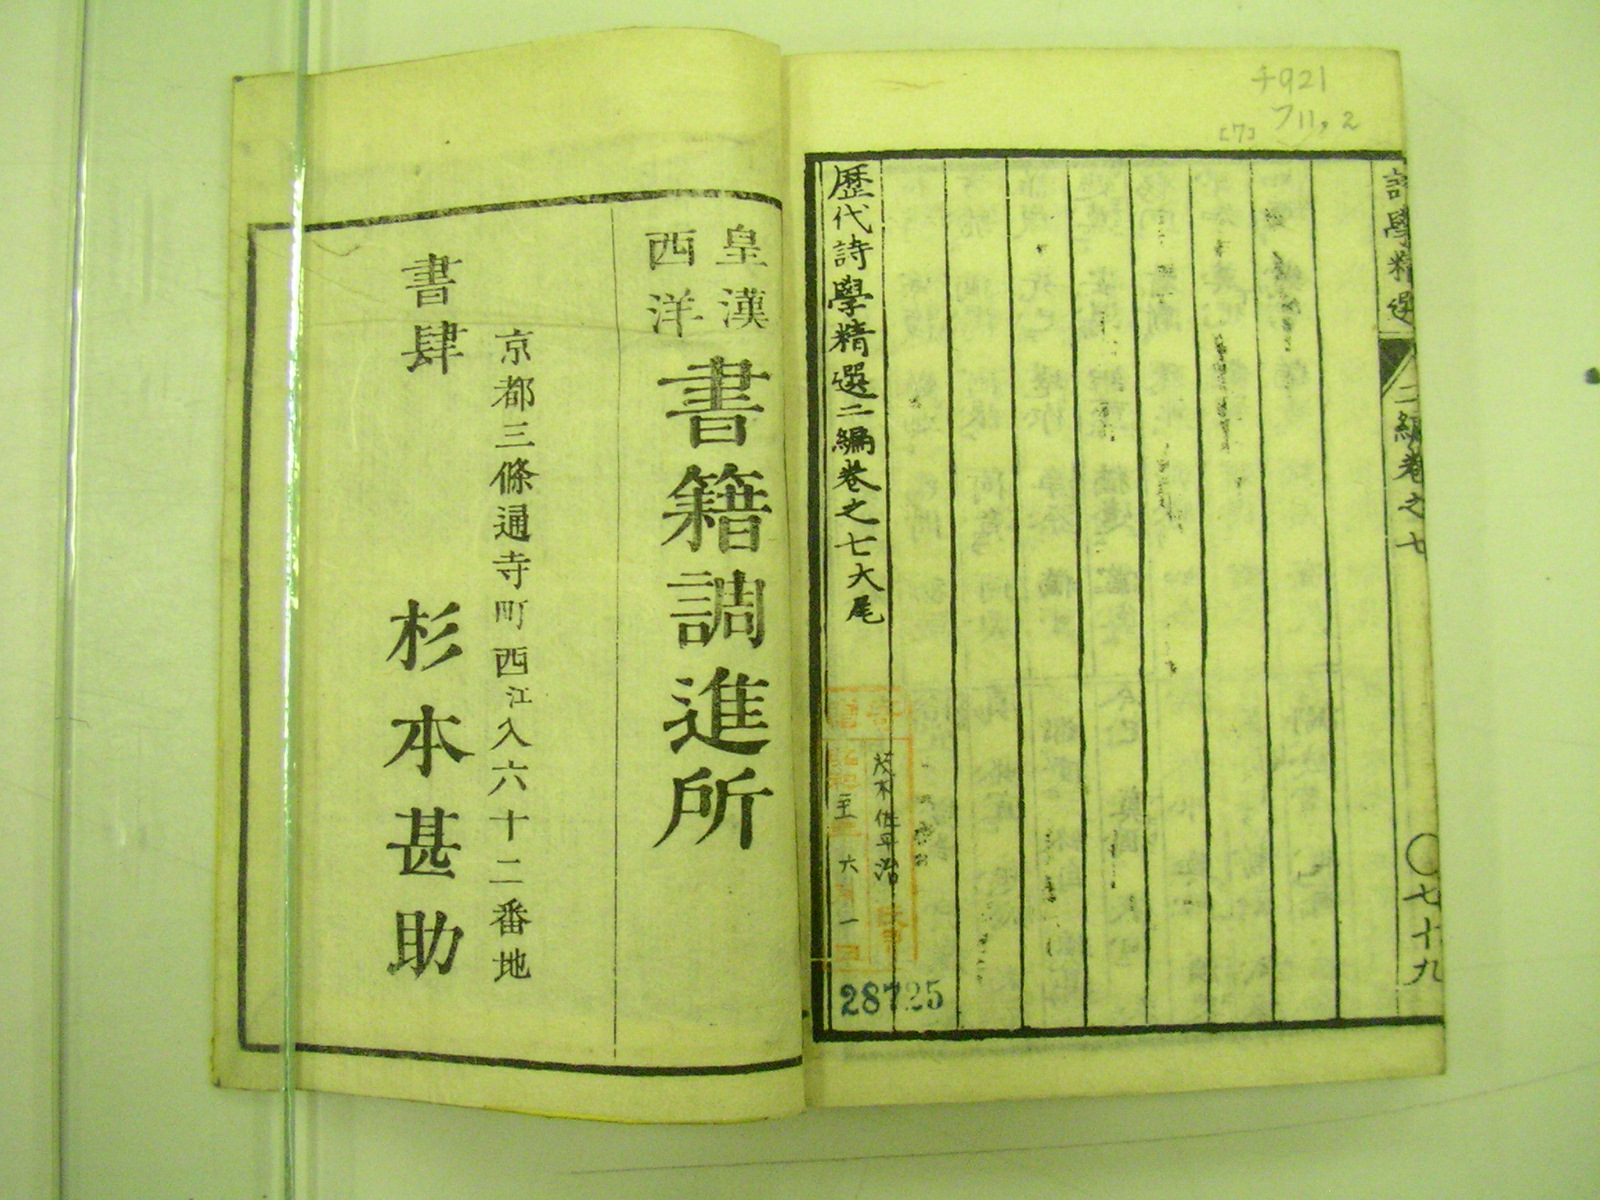 チ921
711,2
[7]
詩學精選 二編卷之七 〇七十九
歷代詩學精選二編卷之七大尾
茂木佐平治
至 六 一
28725
皇漢
西洋
書籍調進所
京都三條通寺町西江入六十二番地
書肆 杉本甚助